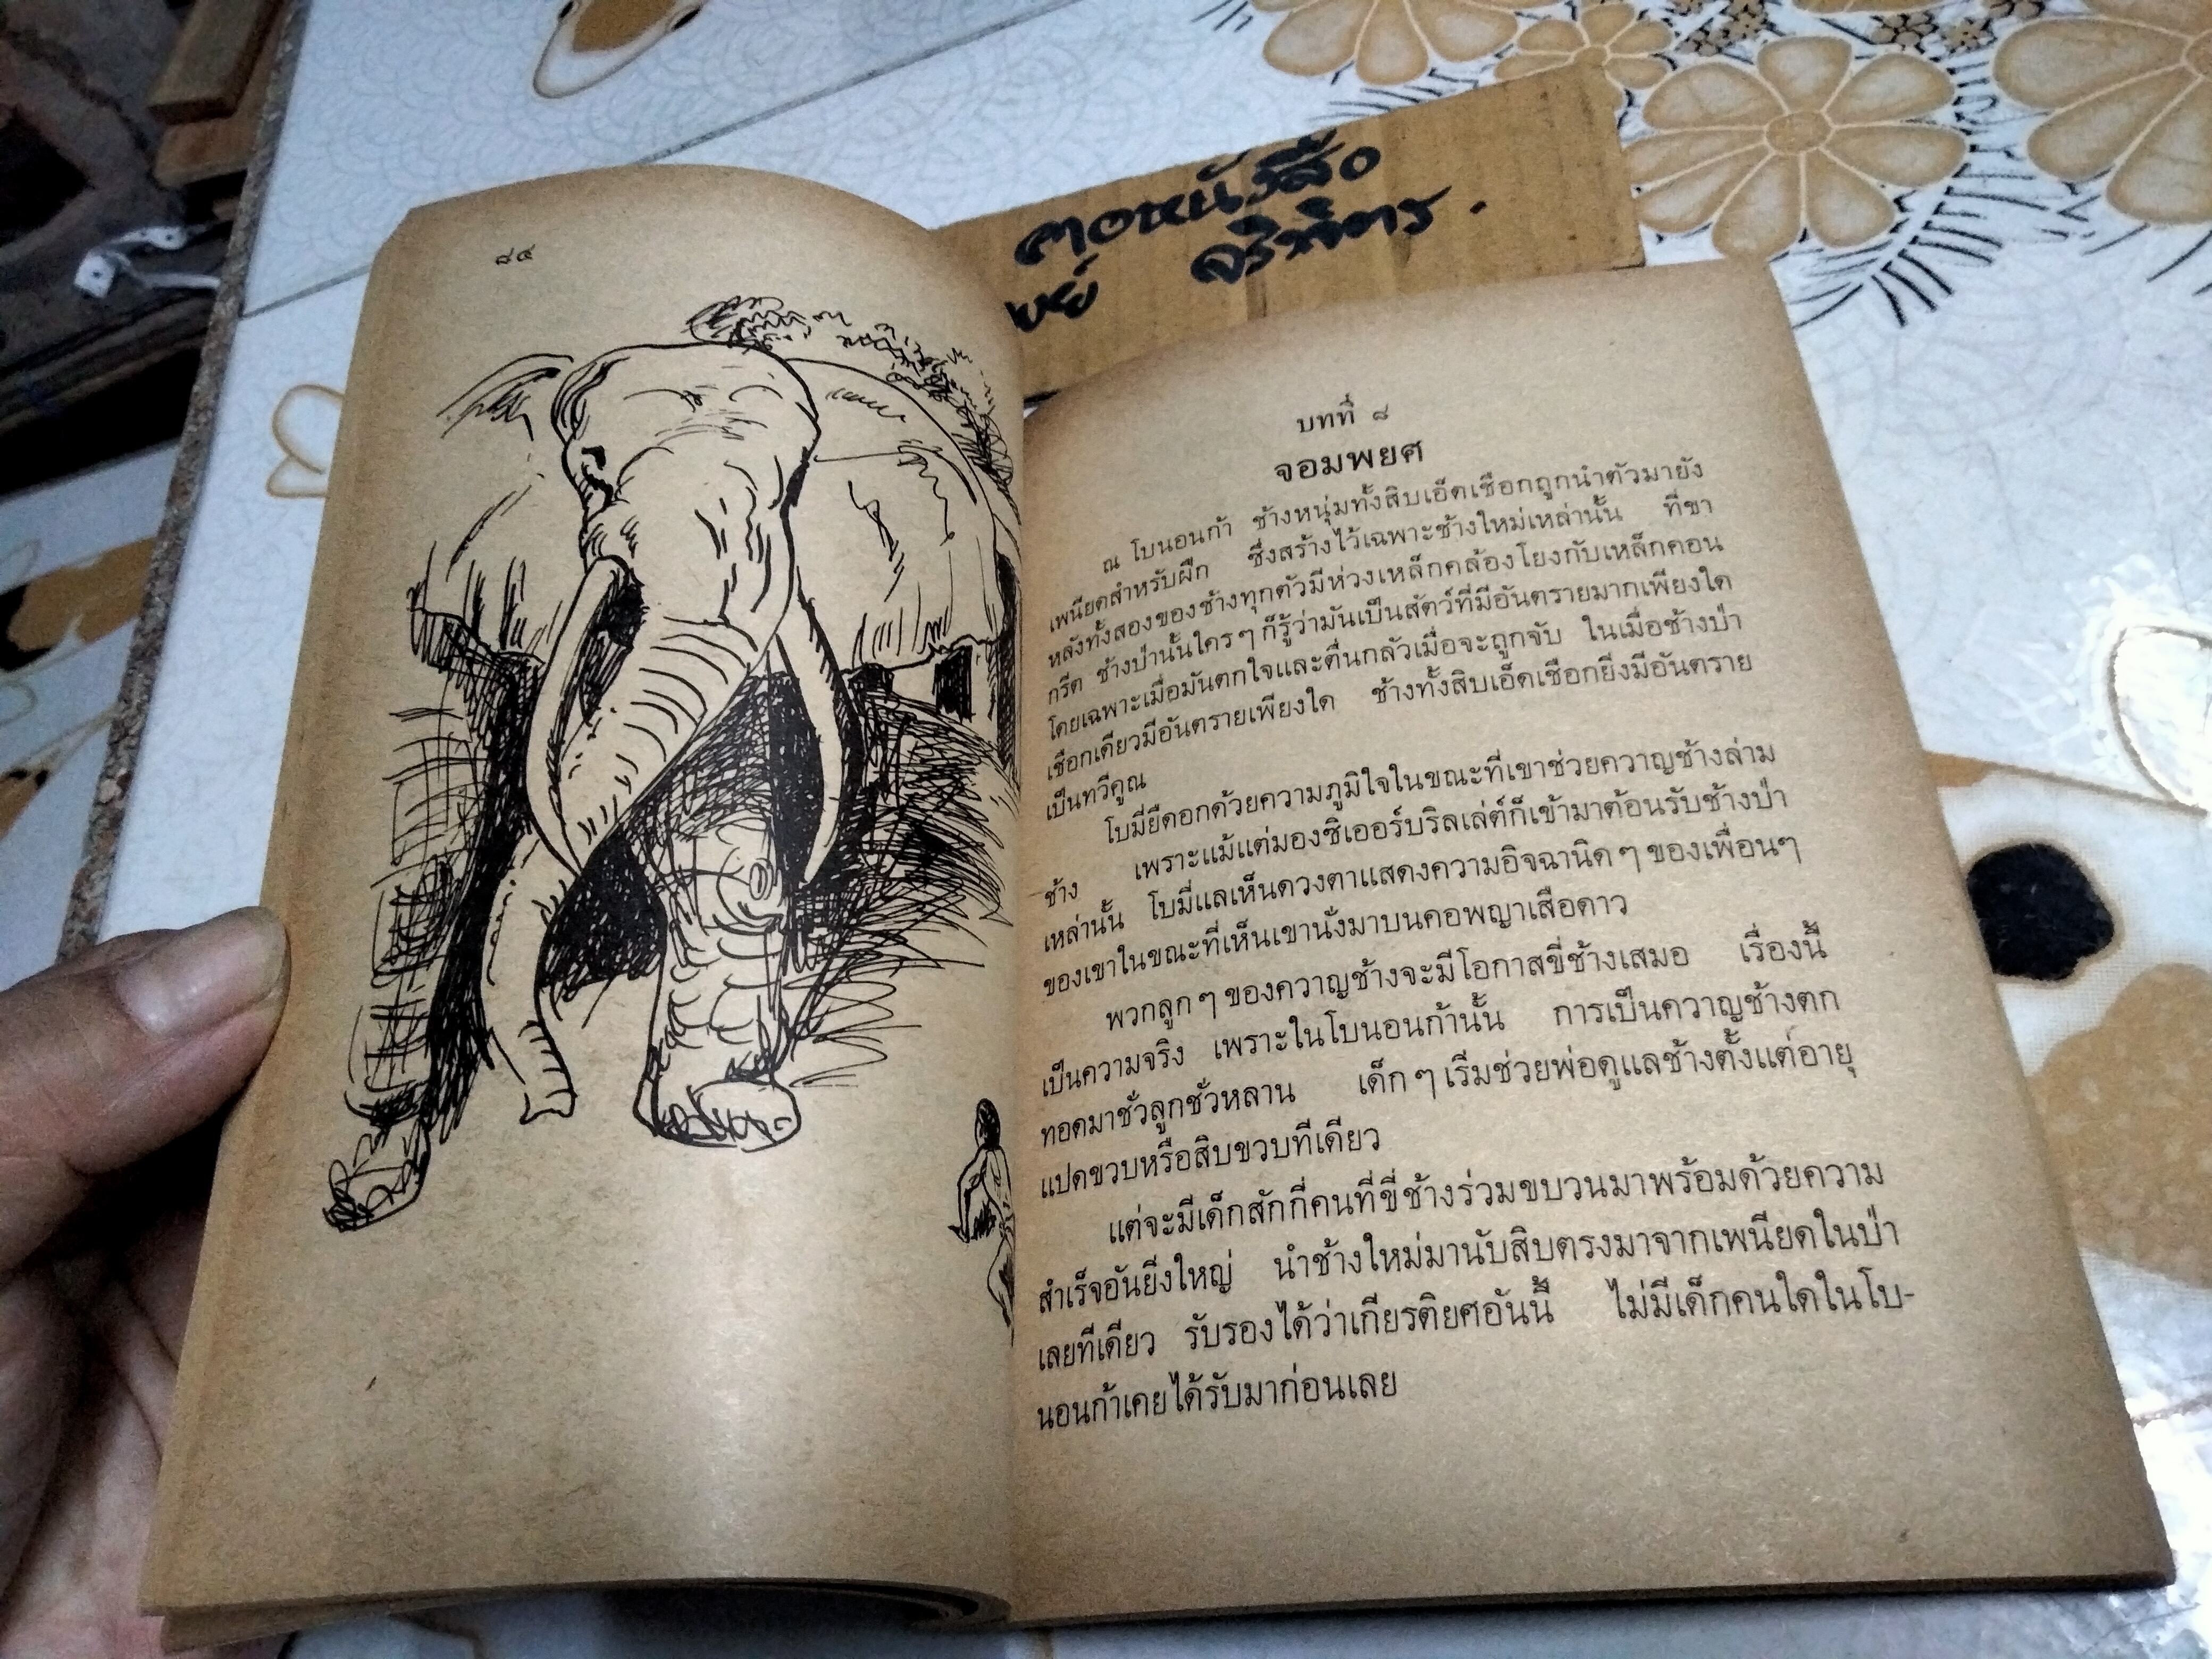 ๘๔
คอหนังสือ
ขย์ จริพิตร.
บทที่ ๘
จอมพยศ
ณ โบนอนก้า ช้างหนุ่มทั้งสิบเอ็ดเชือกถูกนำตัวมายัง
เพนียดสำหรับฝึก ซึ่งสร้างไว้เฉพาะช้างใหม่เหล่านั้น ที่ขา
หลังทั้งสองของช้างทุกตัวมีห่วงเหล็กคล้องโยงกับเหล็กคอน
กรีต ช้างป่านั้นใคร ๆ ก็รู้ว่ามันเป็นสัตว์ที่มีอันตรายมากเพียงใด
โดยเฉพาะเมื่อมันตกใจและตื่นกลัวเมื่อจะถูกจับ ในเมื่อช้างป่า
เชือกเดียวมีอันตรายเพียงใด ช้างทั้งสิบเอ็ดเชือกยิ่งมีอันตราย
เป็นทวีคูณ
โบมี่ยืดอกด้วยความภูมิใจในขณะที่เขาช่วยควาญช้างล่าม
ช้าง เพราะแม้แต่มองซิเออร์บริลเล่ต์ก็เข้ามาต้อนรับช้างป่า
เหล่านั้น โบมี่แลเห็นดวงตาแสดงความอิจฉานิด ๆ ของเพื่อนๆ
ของเขาในขณะที่เห็นเขานั่งมาบนคอพญาเสือดาว
พวกลูก ๆ ของควาญช้างจะมีโอกาสขี่ช้างเสมอ เรื่องนี้
เป็นความจริง เพราะในโบนอนก้านั้น การเป็นควาญช้างตก
ทอดมาชั่วลูกชั่วหลาน เด็ก ๆ เริ่มช่วยพ่อดูแลช้างตั้งแต่อายุ
แปดขวบหรือสิบขวบทีเดียว
แต่จะมีเด็กสักกี่คนที่ขี่ช้างร่วมขบวนมาพร้อมด้วยความ
สำเร็จอันยิ่งใหญ่ นำช้างใหม่มานับสิบตรงมาจากเพนียดในป่า
เลยทีเดียว รับรองได้ว่าเกียรติยศอันนี้ ไม่มีเด็กคนใดในโบ-
นอนก้าเคยได้รับมาก่อนเลย